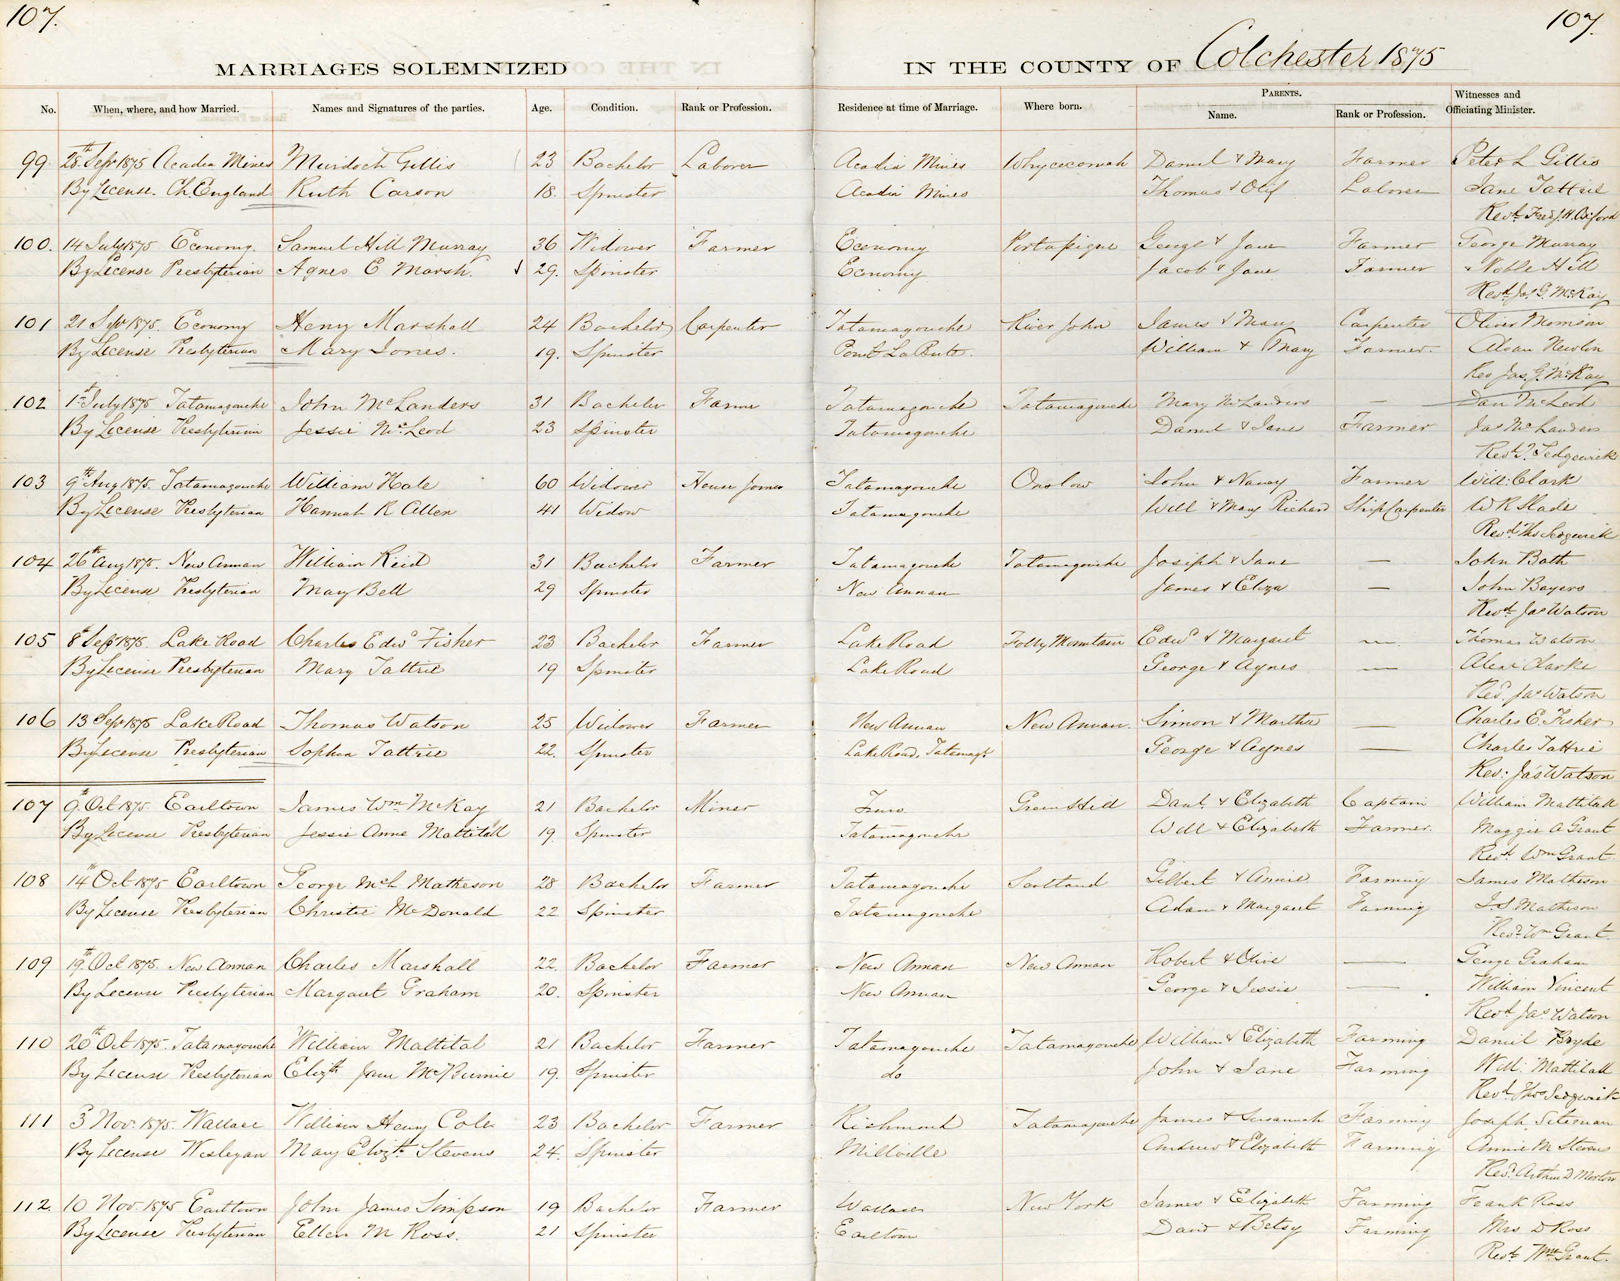 107.
107.
MARRIAGES SOLEMNIZED IN THE COUNTY OF Colchester 1875
No. When, where, and how Married. Names and Signatures of the parties. Age. Condition. Rank or Profession. Residence at time of Marriage. Where born. PARENTS. Name. Rank or Profession. Witnesses and Officiating Minister.
99 28th Sept 1875 Acadia Mines Murdoch Gillis 23 Bachelor Laborer Acadia Mines Whycocomah Daniel & Mary Farmer Peter L Gillis
By License. Ch. England Ruth Carson 18. Spinster Acadia Mines Thomas & Olif Laborer Jane Tattrie
Revd.
100. 14 July 1875 Economy. Samuel Hill Murray 36 Widower Farmer Economy Portapique George & Jane Farmer George Murray
By License Presbyterian Agnes E Marsh. 29. Spinster Economy Jacob & Jane Farmer Noble Hill
Revd. Jas. G. McKay
101 21 Sept 1875. Economy Henry Marshall 24 Bachelor Carpenter Tatamagouche River John James & Mary Carpenter Oliver
By License Presbyterian Mary Jones. 19. Spinster William & Mary Farmer.
Rev Jas. G. McKay
102 1st July 1875 Tatamagouche John McLanders 31 Bachelor Farmer Tatamagouche Tatamagouche Mary McLanders — Dan McLeod
By License Presbyterian Jessie McLeod 23 Spinster Tatamagouche Daniel & Jane Farmer Jas McLanders
Revd. T. Sedgewick
103 9th Aug 1875. Tatamagouche William Hale 60 Widower House Joiner Tatamagouche Onslow John & Nancy Farmer Will: Clark
By License Presbyterian Hannah R Allen 41 Widow Tatamagouche Will & Mary Richard Ship Carpenter W R Slade
Revd Thos Sedgewick
104 26th Aug 1875. New Annan William Reid 31 Bachelor Farmer Tatamagouche Tatamagouche Joseph & Jane — John Bath
By License Presbyterian Mary Bell 29 Spinster New Annan James & Eliza — John Byers
Revd. Jas Watson
105 8th Sept 1875. Lake Road Charles Edwd Fisher 23 Bachelor Farmer Lake Road Folly Mountain Edwd & Margaret — Thomas Watson
By License Presbyterian Mary Tattrie 19 Spinster Lake Road George & Agnes — Alex Clarke
Revd. Jas Watson
106 13 Sept 1875 Lake Road Thomas Watson 25 Widower Farmer New Annan New Annan. Simon & Martha — Charles E. Fisher
By License Presbyterian Sophia Tattrie 22. Spinster Lake Road, George & Agnes — Charles Tattrie
Rev: Jas Watson
107 9th Oct 1875. Earltown James Wm McKay 21 Bachelor Miner Danl. & Elizabeth Captain William Mattatall
By License Presbyterian Jessie Anne Mattatall 19. Spinster Tatamagouche Will & Elizabeth Farmer. Maggie A Grant
Revd. Wm Grant
108 14th Oct 1875 Earltown George McL Matheson 28 Bachelor Farmer Tatamagouche Scotland Gilbert & Annie Farming James Matheson
By License Presbyterian Christie McDonald 22 Spinster Tatamagouche Adam & Margaret Farming Matheson
Revd. Wm Grant
109 19th Oct 1875. New Annan Charles Marshall 22. Bachelor Farmer New Annan New Annan Robert & Olive — George Graham
By License Presbyterian Margaret Graham 20. Spinster New Annan George & Jessie — William Vincent
Revd Jas. Watson
110 20th Oct 1875. Tatamagouche William Mattatal 21 Bachelor Farmer Tatamagouche Tatamagouche William & Elizabeth Farming Daniel Bryde
By License Presbyterian Elizth Jane McBurnie 19. Spinster do John & Jane Farming Will: Mattatall
Revd. Thos Sedgewick
111 3 Nov. 1875. Wallace William Henry Cole 23 Bachelor Farmer Richmond Tatamagouche James & Susannah Farming Joseph
By License Wesleyan Mary Elizth Stevens 24. Spinster Millville Andrew & Elizabeth Farming Annie M Stevens
Revd. Arthur D Morton
112. 10 Nov. 1875 Earltown John James Simpson 19 Bachelor Farmer Wallace New York James & Elizabeth Farming Frank Ross
By License Presbyterian Ellen M Ross. 21 Spinster Earltown David & Betsy Farming Mrs D Ross
Revd. Wm Grant.